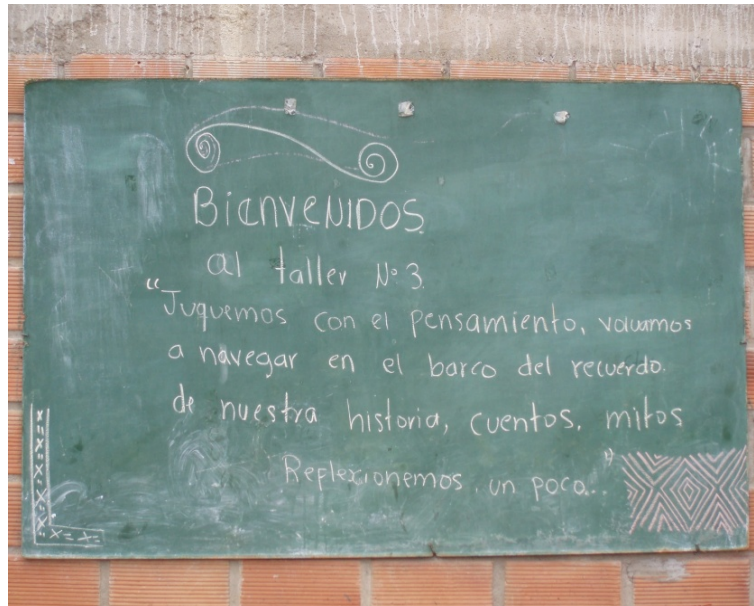 BIENVENIDOS
al taller Nº 3.
"Juguemos con el pensamiento, volvamos
a navegar en el barco del recuerdo.
de nuestra historia, cuentos, mitos
Replexionemos, un poco.."